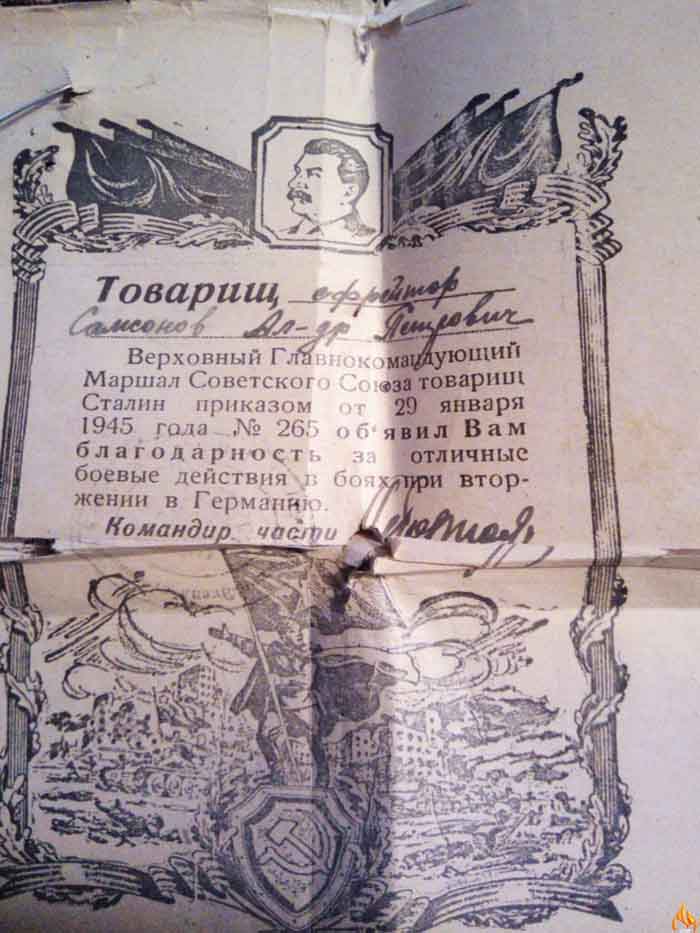 Товарищ ефрейтор
Самсонов Ал-др Петрович
Верховный Главнокомандующий
Маршал Советского Союза товарищ
Сталин приказом от 29 января
1945 года № 265 об'явил Вам
благодарность за отличные
боевые действия в боях при втор-
жении в Германию.
Командир части